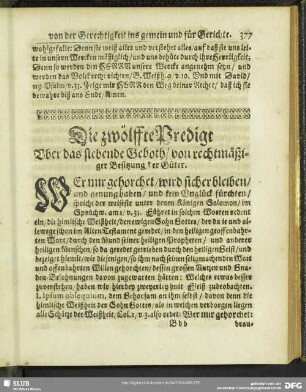 von der Gerechtigkeit ins gemein und für Gerichte. 377
wohlgefalle: Denn sie weiß alles und verstehet alles/ auf daß sie uns lei-
te in unsern Wercken mässiglich/ und uns behüte durch ihre Herrligkeit;
Denn so werden dem HERRN unsere Wercke angenehm seyn/ und
werden das Volck recht richten/ B. Weißh. 9 v. 10. Und mit David/
119 Psalm/ v. 33. Zeige mir HERR den Weg deiner Rechte/ daß ich sie
bewahre biß ans Ende/ Amen.
Die zwölffte Predigt
Vber das siebende Geboth/ von rechtmäßi-
ger Besitzung der Güter.
WEr mir gehorchet/ wird sicher bleiben/
und genung haben/ und kein Unglück fürchten/
spricht der weiseste unter denen Königen Salomon/ im
Sprüchw. am 1/ v. 33. Führet in solchen Worten redend
ein/ die himlische Weißheit/ den ewigen Sohn Gottes/ der da ie und al-
lewege schon im Alten Testament geredet/ in den heiligen geoffenbahr-
ten Wort/ durch den Mund seiner heiligen Propheten/ und anderer
heiligen Menschen/ so da geredet getrieben durch den heiligen Geist/ und be-
zeiget hiemit/ wie diejenigen/ so ihm nach seinen seligmachenden Wort
und offenbahrten Willen gehorchten/ dessen grossen Nutzen und Gna-
den-Belohnungen davon zugewarten hätten: Welches etwas besser
zuverstehen/ haben wir hierbey zuvorher mit Fleiß zu betrachten.
Ipsum obsequium, dem Gehorsam an ihm selbst/ davon denn die
himmlische Weißheit der Sohn Gottes/ als in welchen verborgen liegen
alle Schätze der Weißheit/ Col. 2/ v. 3. also redet: Wer mir gehorchet:
B b b
drau-
SLUB